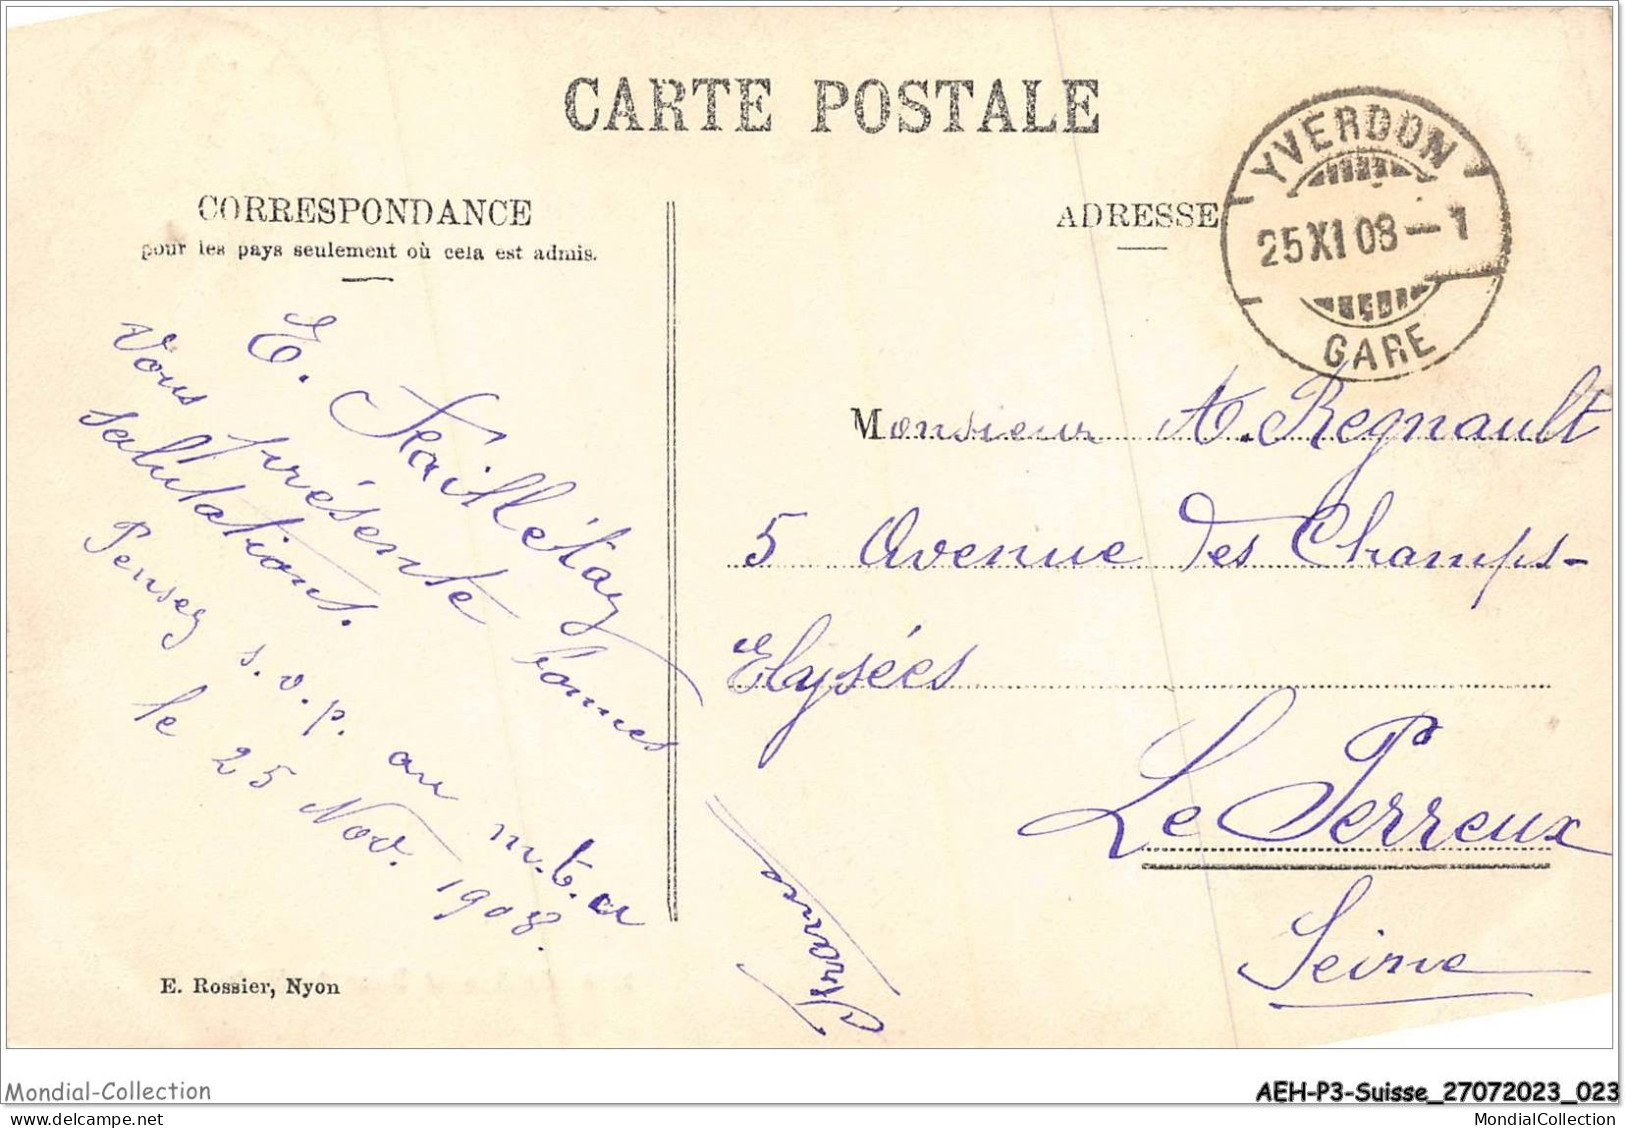 CARTE POSTALE
CORRESPONDANCE
pour les pays seulement où cela est admis.
ADRESSE
YVERDON
25 XI 08 - 1
GARE
E. Jeaillétaz
Vous présente bonnes
salutations.
Pensez s.v.p. au m.t.a
le 25 Nov. 1908.
Monsieur A. Regnault
5 Avenue des Champs-
Elysées
Le Perreux
Seine
France
E. Rossier, Nyon
Mondial-Collection
AEH-P3-Suisse_27072023_023
MondialCollection